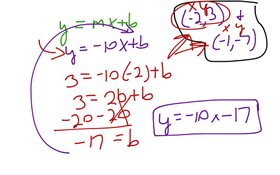 y = mx+b
x y
(-2,3) &
x y
(-1,-7)
y = -10x+b
3 = -10(-2)+b
3 = 20+b
-20 -20
-17 = b
y=-10x-17